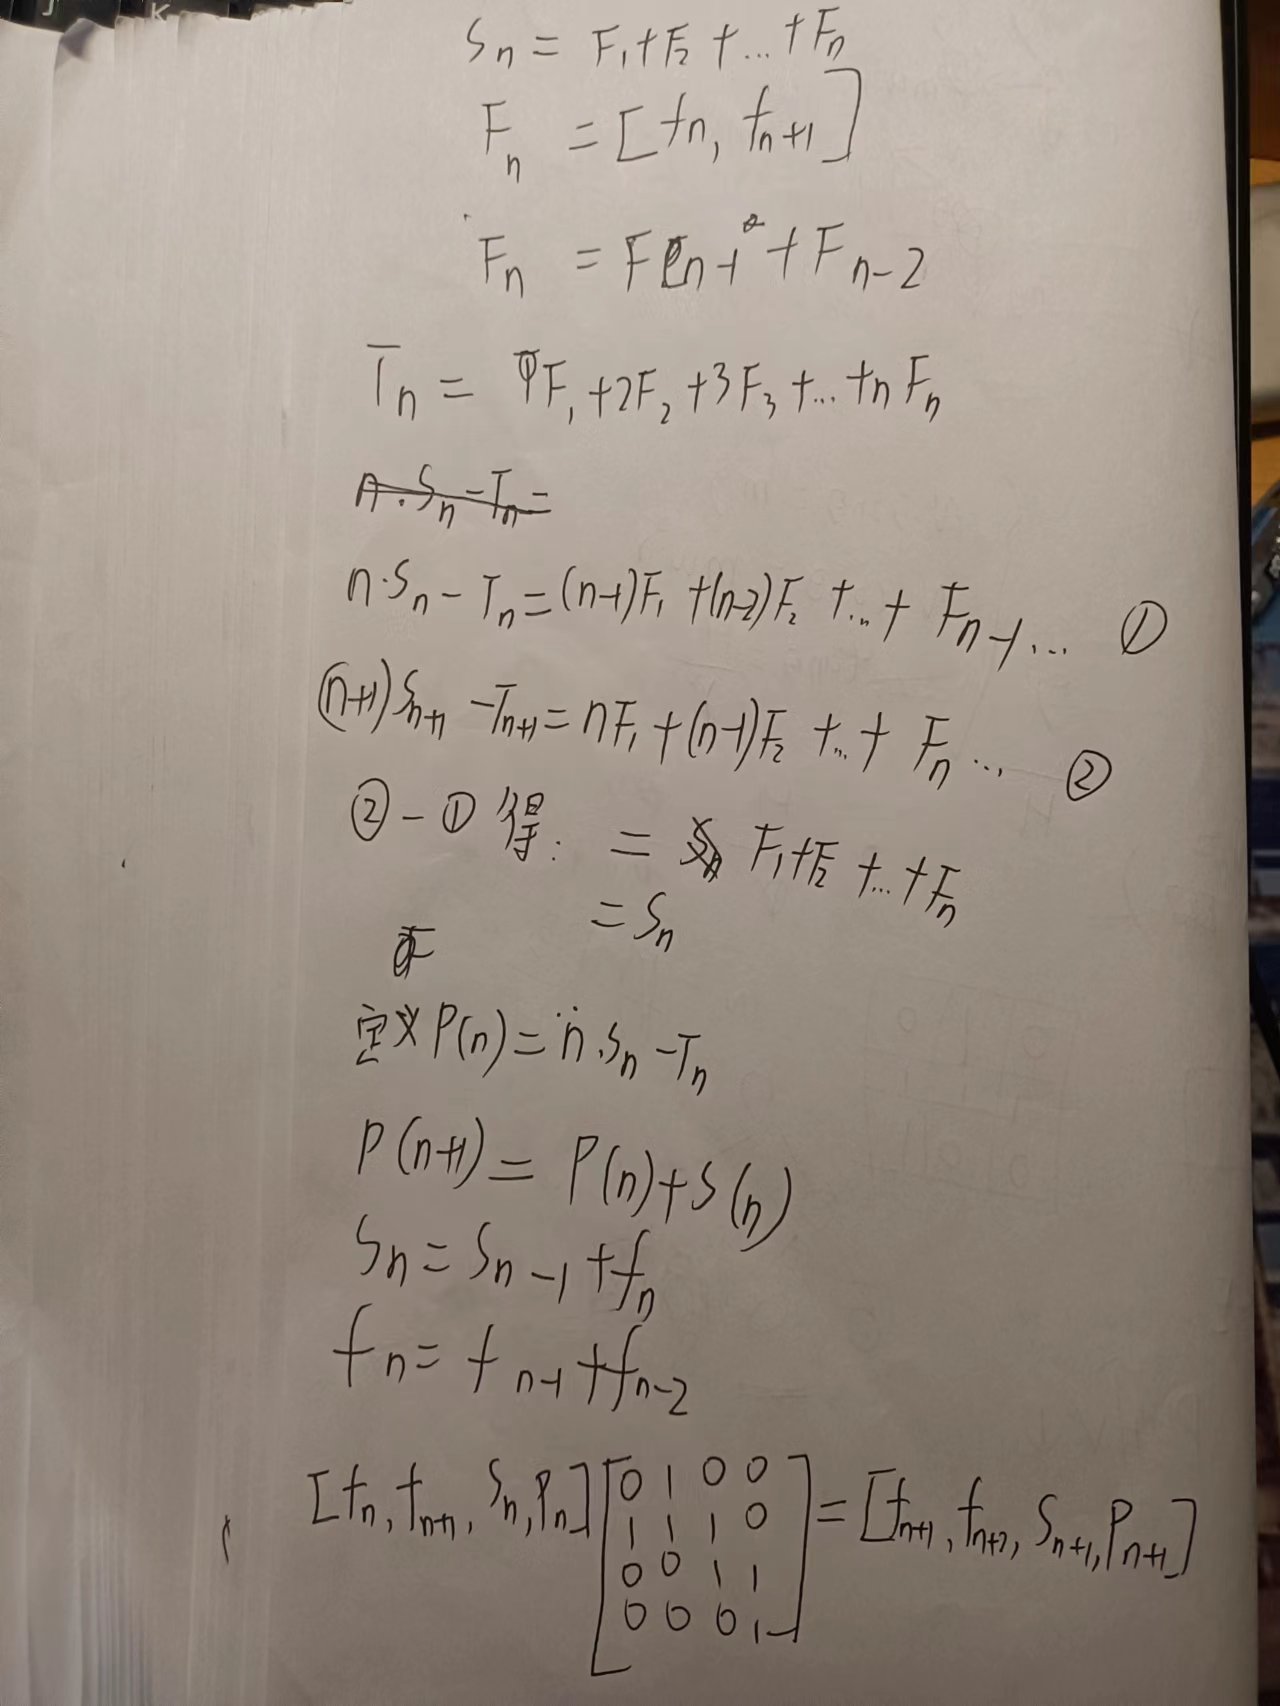 Sn = F1+F2 +...+Fn
Fn = [fn, fn+1]
Fn = Fn-1 + Fn-2
Tn = 1F1+2F2+3F3+...+nFn
n·Sn-Tn=
n·Sn-Tn=(n-1)F1+(n-2)F2+...+Fn-1... ①
(n+1)Sn+1-Tn+1=nF1+(n-1)F2+...+Fn... ②
②-①得: = F1+F2+...+Fn
=Sn
定义P(n)=n·Sn-Tn
P(n+1)=P(n)+S(n)
Sn=Sn-1+fn
fn=fn-1+fn-2
[fn, fn+1, Sn, Pn] [0 1 0 0 = [fn+1, fn+2, Sn+1, Pn+1]
1 1 1 0
0 0 1 1
0 0 0 1]